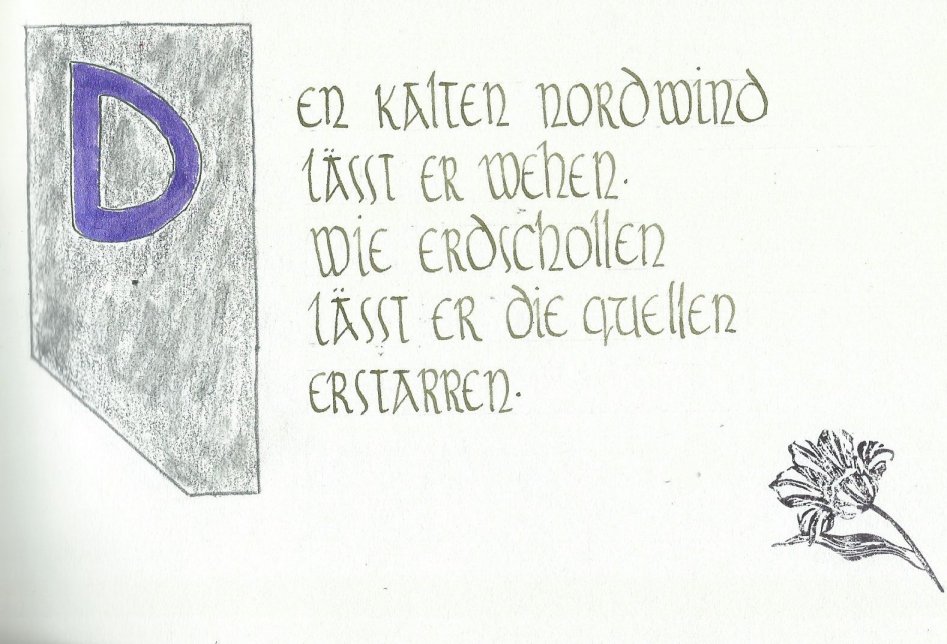 DEN KALTEN NORDWIND
LÄSST ER WEHEN.
WIE ERDSCHOLLEN
LÄSST ER DIE QUELLEN
ERSTARREN.